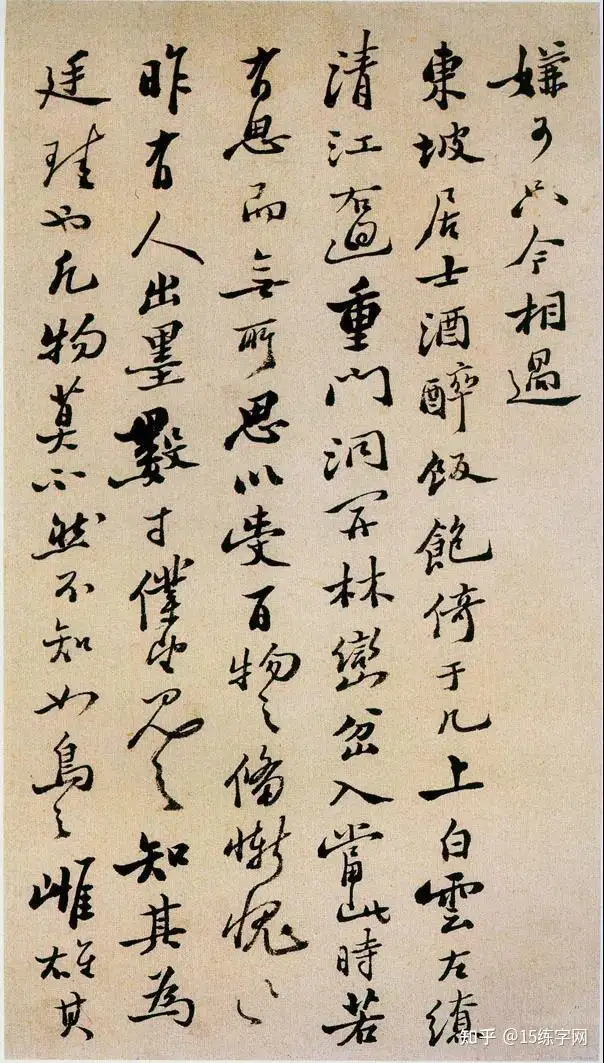 嫌可只令相過
東坡居士酒醉飯飽倚于几上白雲左繚
清江右迴重門洞開林巒岔入當此時若
有思而無所思以受百物之備慚愧〻
昨有人出墨數寸僕望見之知其為
廷珪也凡物莫不然不知如鳥之雌雄其
知乎 @15练字网